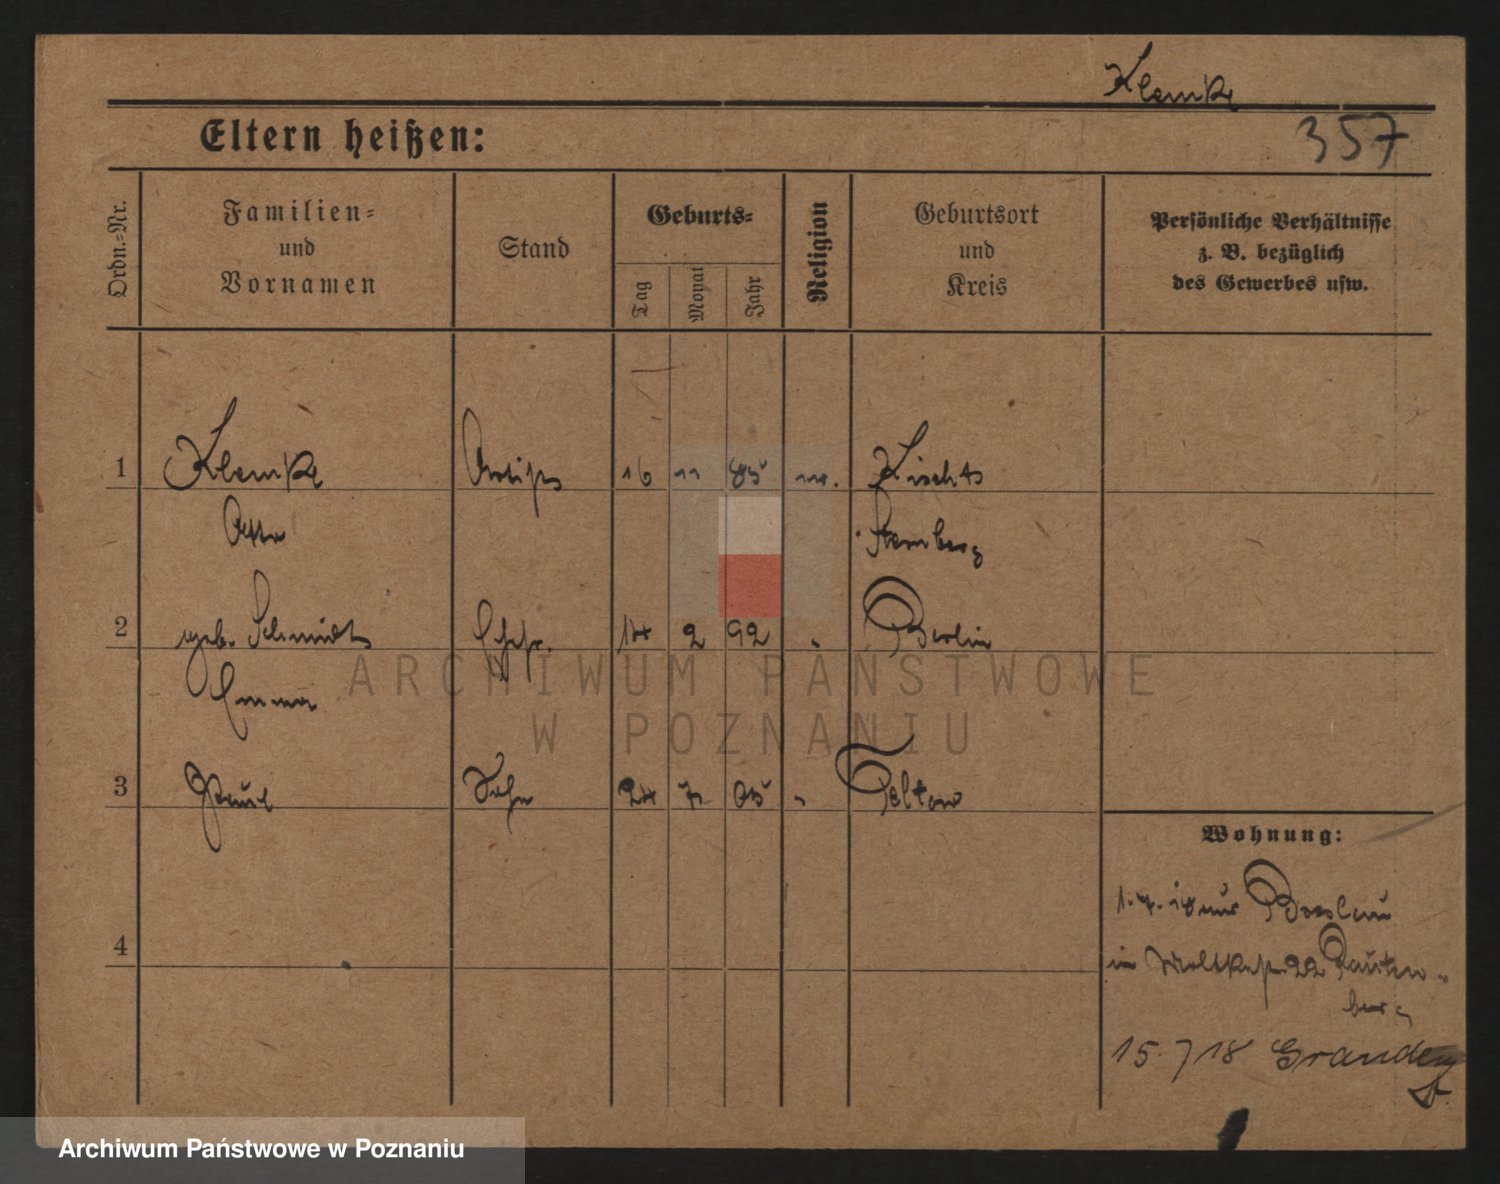 Klemke
Eltern heißen:
357
Ordn.=Nr.
Familien=
und
Vornamen
Stand
Geburts=
Tag
Monat
Jahr
Religion
Geburtsort
und
Kreis
Persönliche Verhältnisse
z. B. bezüglich
des Gewerbes usw.
1 Klemke Artist 16 11 85
Otto Sternberg
2 geb. Schmidt Ehefr. 14 2 92 " Berlin
Emma
3 Paul Sohn 24 7 05 " Teltow
Wohnung:
4
Breslau
in Moltkestr 22 Lauten-
burg
15. 7 18 Graudenz
ARCHIWUM PAŃSTWOWE
W POZNANIU
Archiwum Państwowe w Poznaniu